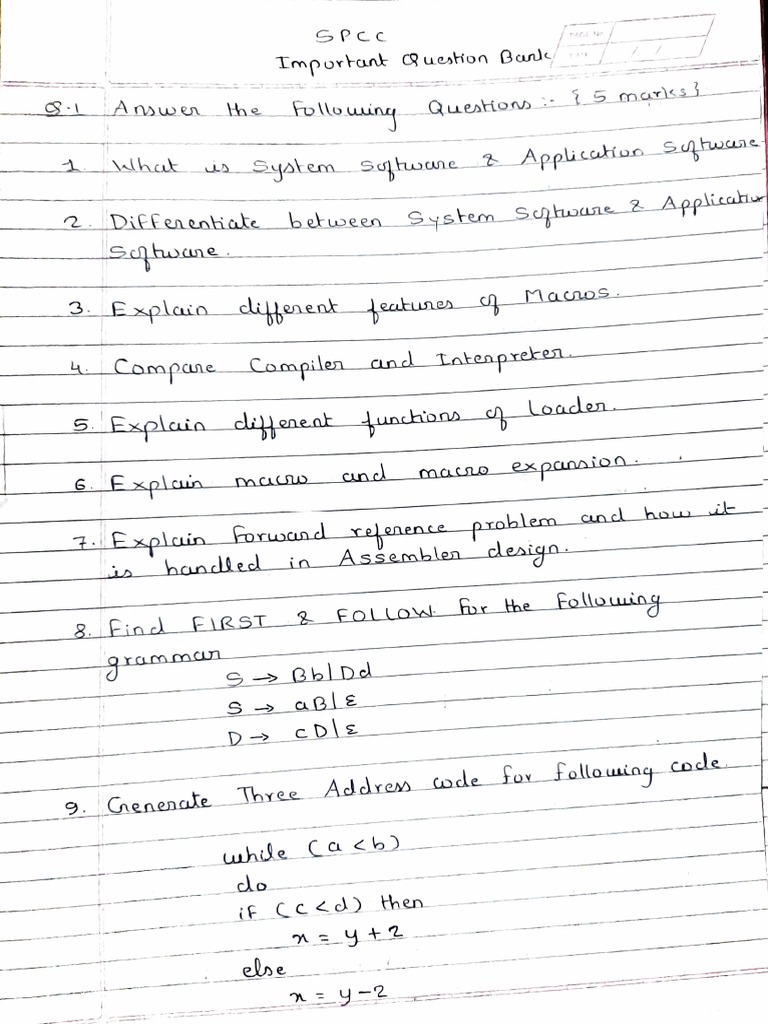 SPCC
Important Question Bank
PAGE No
DATE / /
Q.1 Answer the Following Questions :- { 5 marks }
1. What is System Software & Application Software
2. Differentiate between System Software & Application
Software.
3. Explain different features of Macros.
4. Compare Compiler and Interpreter.
5. Explain different functions of Loader.
6. Explain macro and macro expansion.
7. Explain Forward reference problem and how it
is handled in Assembler design.
8. Find FIRST & FOLLOW For the Following
grammar
S → Bb|Dd
S → aB|ε
D → cD|ε
9. Generate Three Address code for following code.
while (a<b)
do
if (c<d) then
x = y+2
else
x = y-2